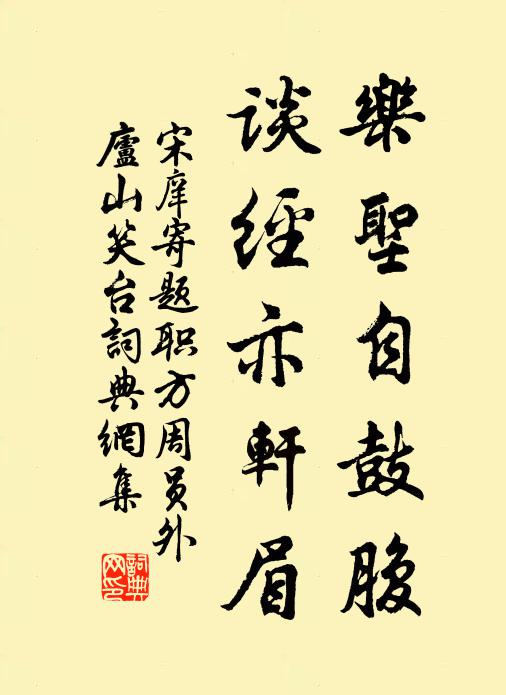 樂聖自鼓腹
談經亦軒眉
宋庠寄題职方周员外
廬山笑台詞典網集
詞典
网印